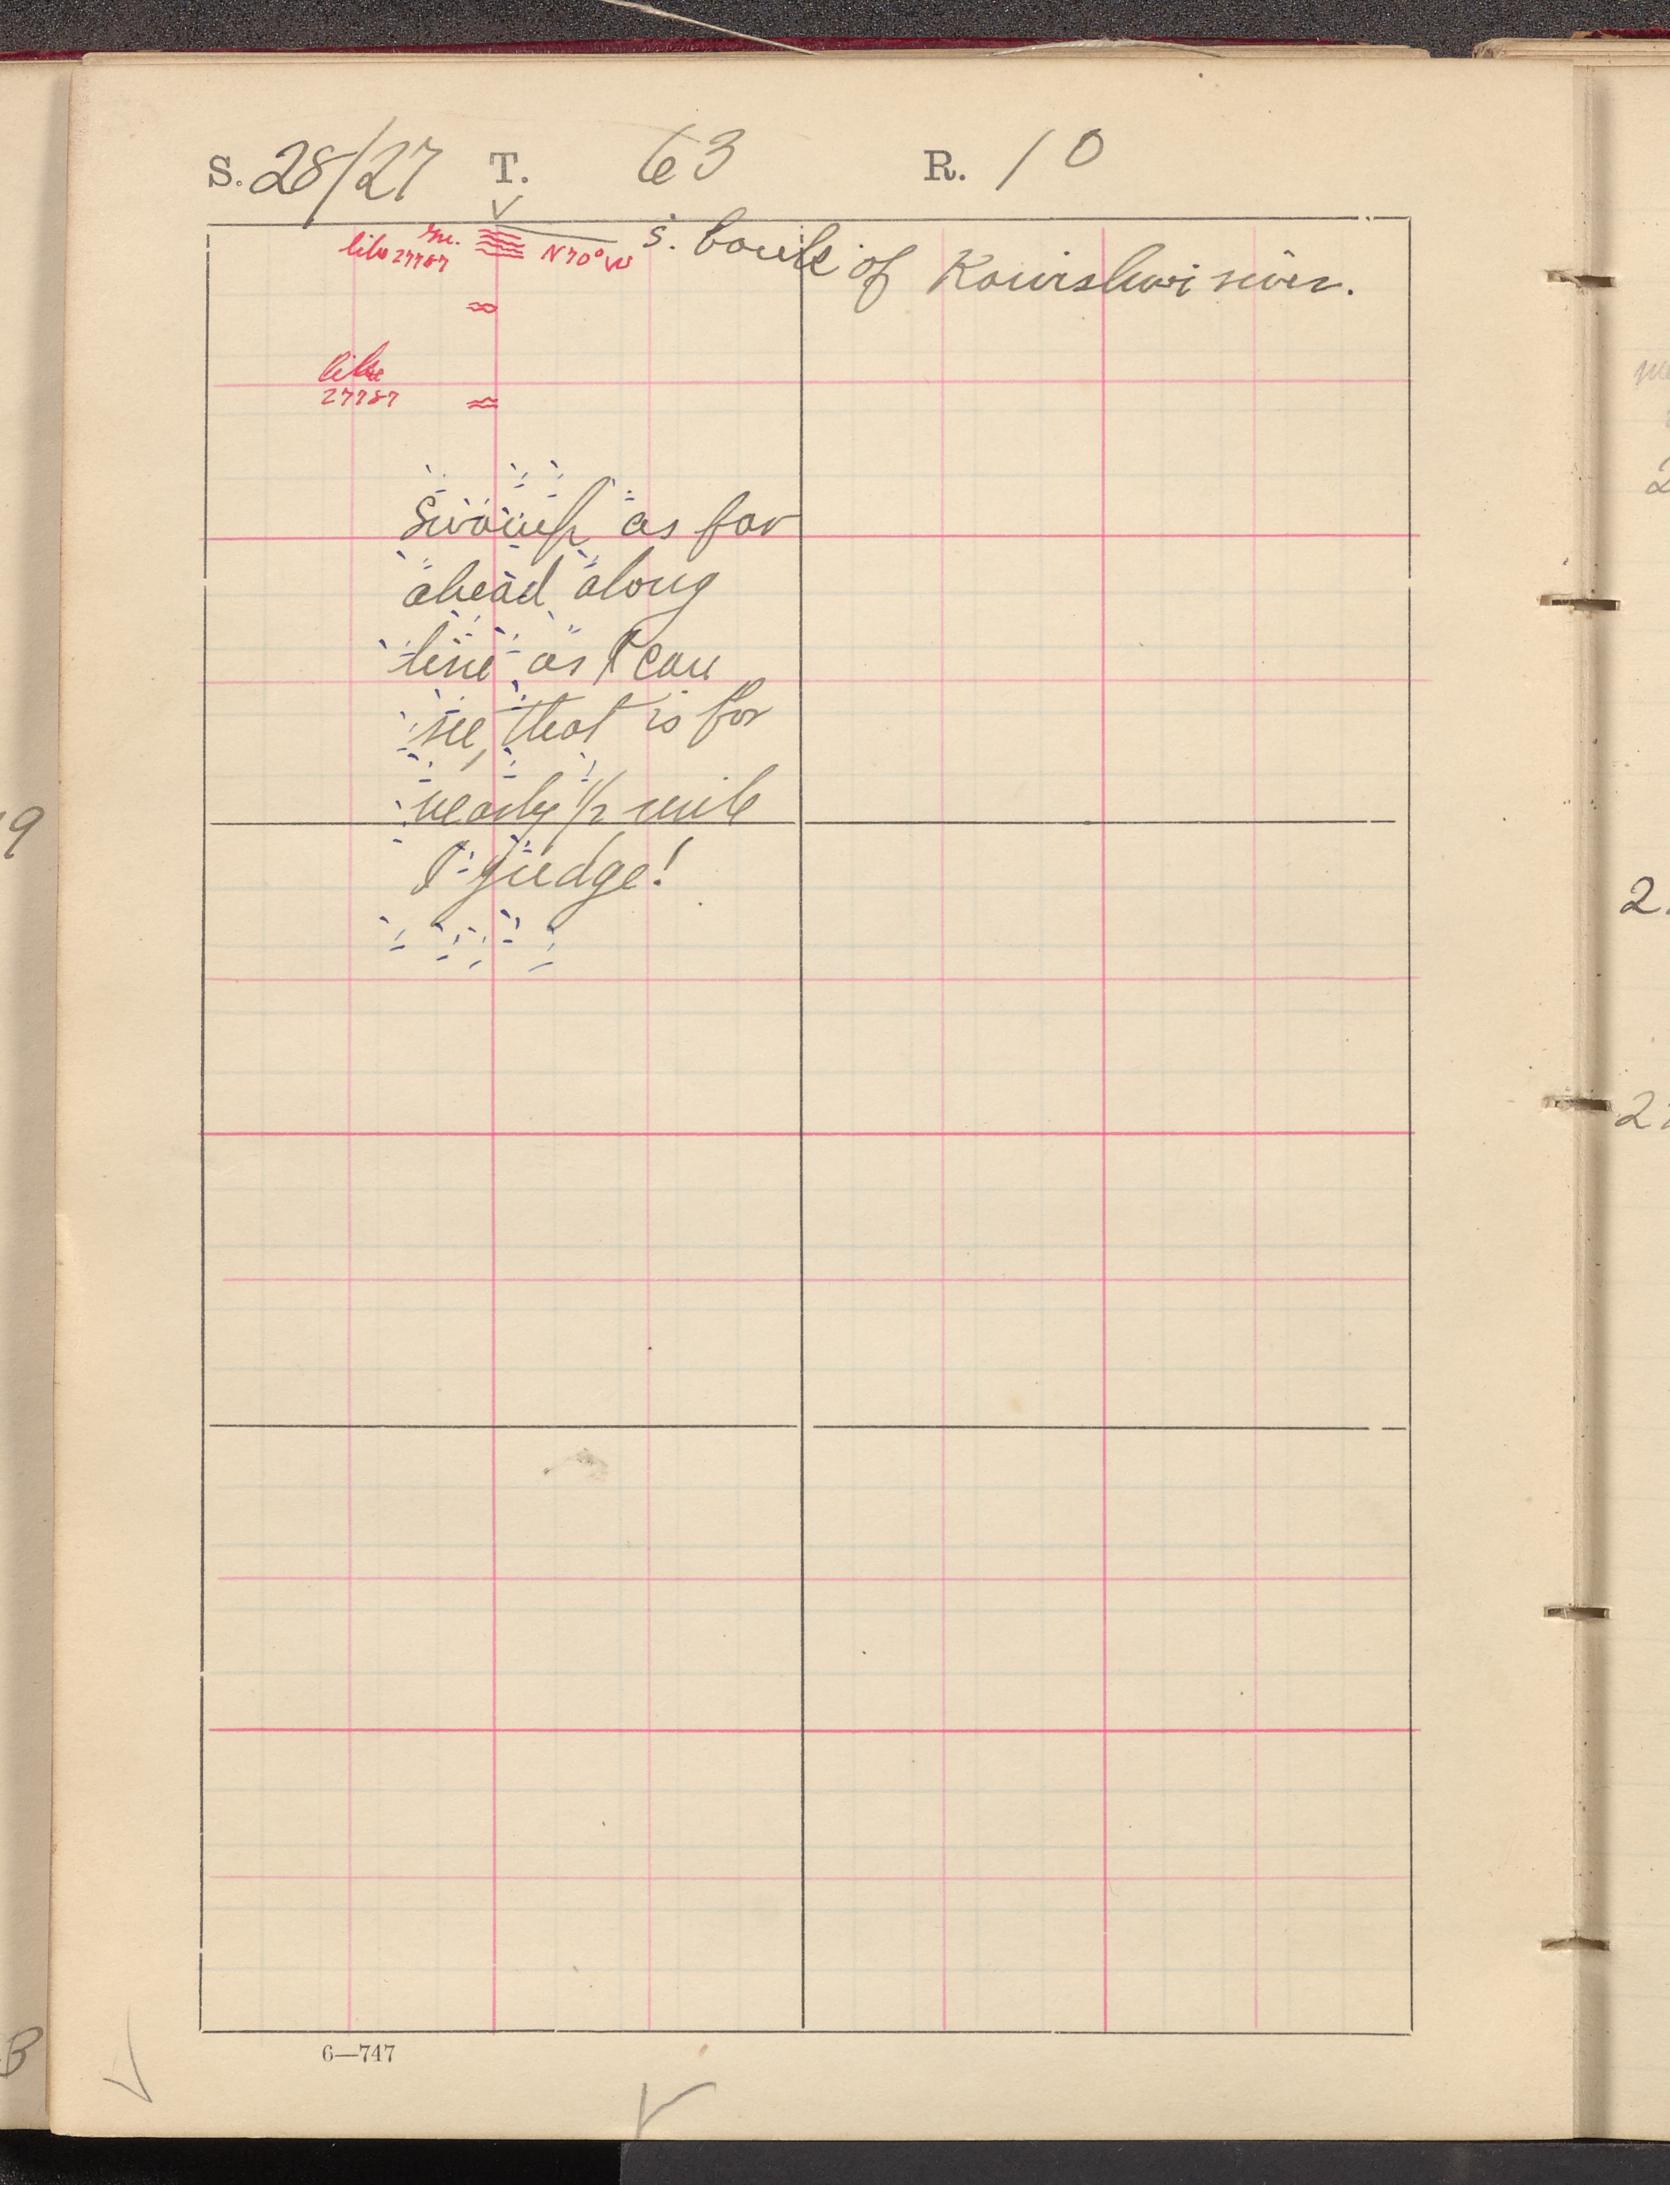 S. 28/27 T. 63 R. 10
s. bank of Kawishwi river.
gn. N70°W
like 27787
like
27787
Swamp as far
ahead along
line as I can
see, that is for
nearly 1/2 mile
I judge!
6—747
9
2
2
B